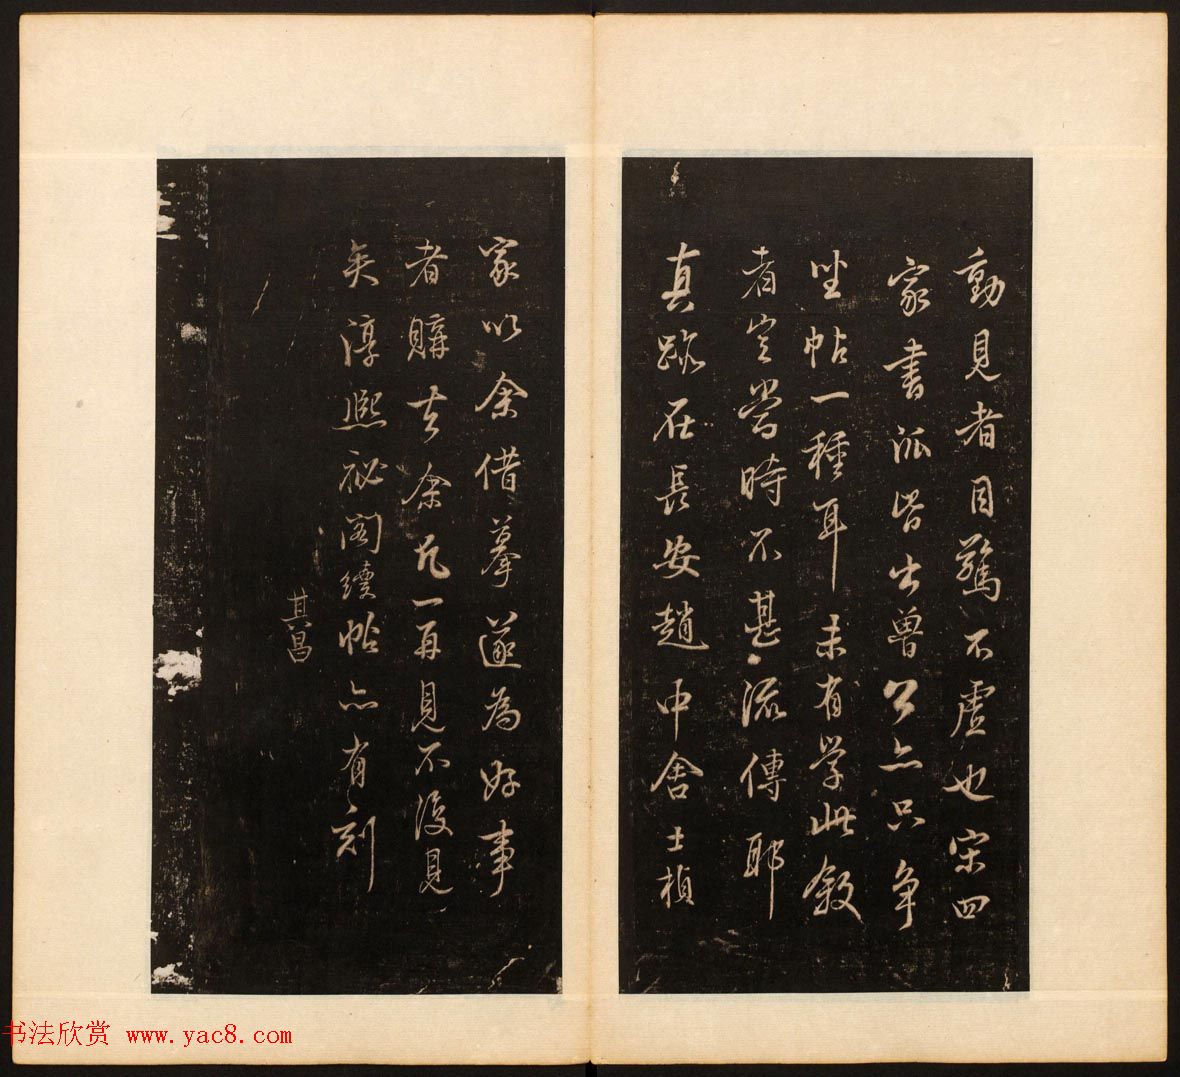 動見者目驚不虛也宋四
家書派皆出魯公亦只争
坐帖一種耳未有学此叙
者豈當時不甚流傳耶
真跡在長安趙中舍士楨
家以余借摹遂為好事
者購去余凡一再見不復見
矣淳熙祕閣續帖亦有刻
其昌
书法欣赏 www.yac8.com